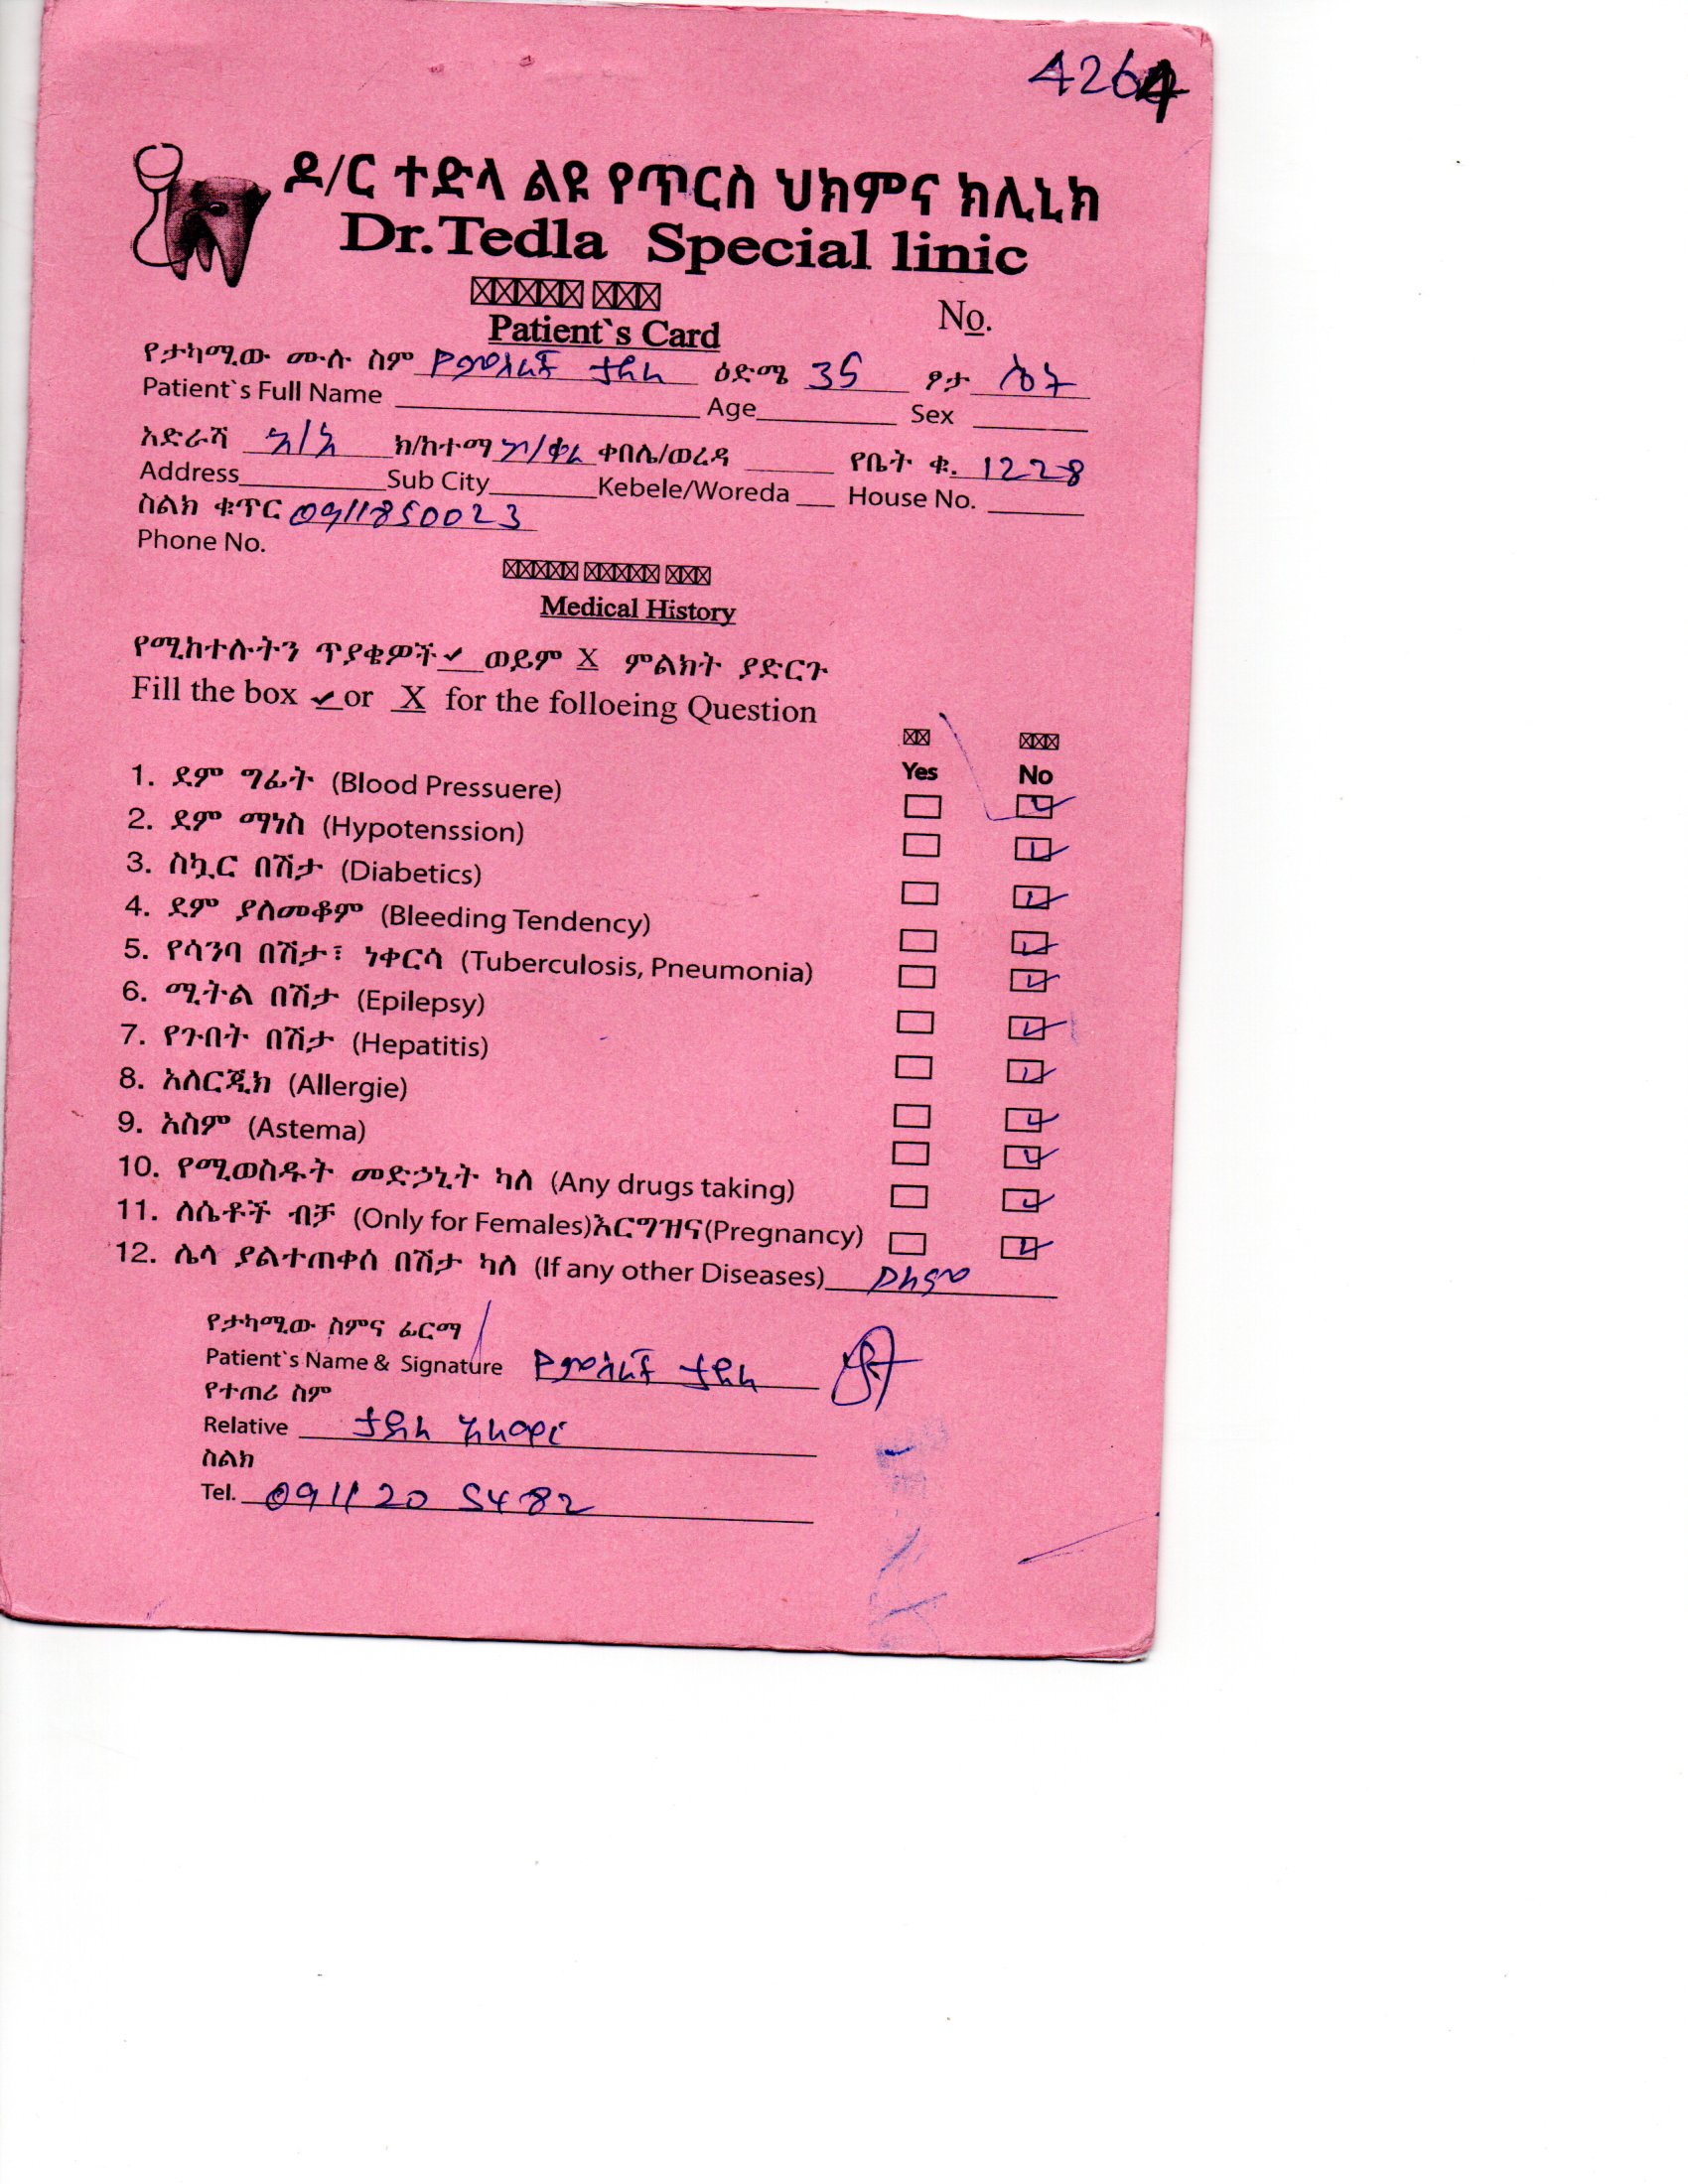 4264
ዶ/ር ተድላ ልዩ የጥርስ ህክምና ክሊኒክ
Dr.Tedla Special linic
Patient`s Card
No.
የታካሚው ሙሉ ስም የምስራች ታደለ ዕድሜ 35 ፆታ ሴት
Patient`s Full Name Age Sex
አድራሻ አ/አ ክ/ከተማ ን/ቀበሌ/ወረዳ የቤት ቁ. 1228
Address Sub City Kebele/Woreda House No.
ስልክ ቁጥር 0911850023
Phone No.
Medical History
የሚከተሉትን ጥያቄዎች ✓ ወይም X ምልክት ያድርጉ
Fill the box ✓ or X for the folloeing Question
Yes No
1. ደም ግፊት (Blood Pressuere)
2. ደም ማነስ (Hypotenssion)
3. ስኳር በሽታ (Diabetics)
4. ደም ያለመቆም (Bleeding Tendency)
5. የሳንባ በሽታ፣ ነቀርሳ (Tuberculosis, Pneumonia)
6. ሚትል በሽታ (Epilepsy)
7. የጉበት በሽታ (Hepatitis)
8. አለርጂክ (Allergie)
9. አስም (Astema)
10. የሚወስዱት መድኃኒት ካለ (Any drugs taking)
11. ለሴቶች ብቻ (Only for Females)እርግዝና(Pregnancy)
12. ሌላ ያልተጠቀሰ በሽታ ካለ (If any other Diseases) የለም
የታካሚው ስምና ፊርማ
Patient`s Name & Signature የምስራች ታደለ
የተጠሪ ስም
Relative ታደለ
ስልክ
Tel. 0911 20 5482